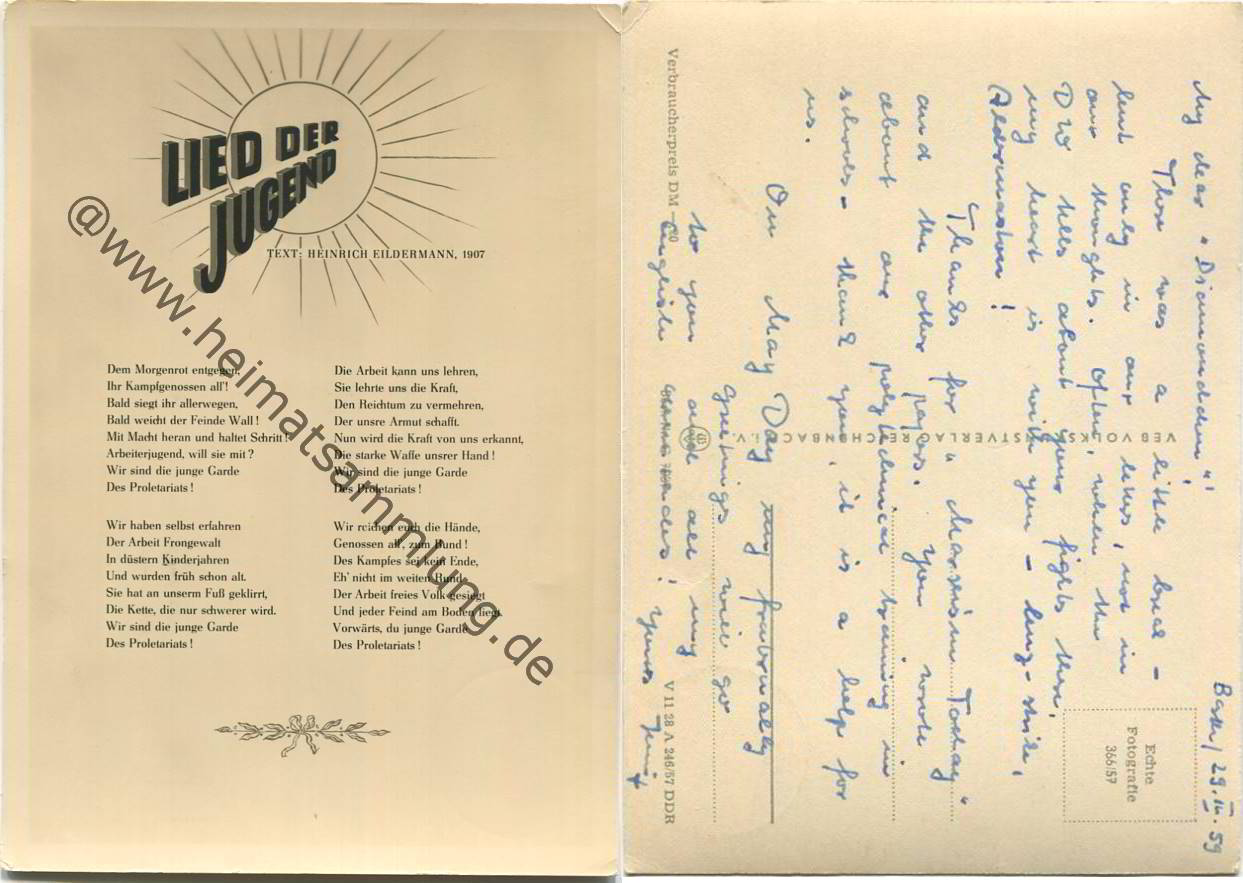 LIED DER
JUGEND
TEXT: HEINRICH EILDERMANN, 1907
Dem Morgenrot entgegen,
Ihr Kampfgenossen all'!
Bald siegt ihr allerwegen,
Bald weicht der Feinde Wall!
Mit Macht heran und haltet Schritt!
Arbeiterjugend, will sie mit?
Wir sind die junge Garde
Des Proletariats!
Wir haben selbst erfahren
Der Arbeit Frongewalt
In düstern Kinderjahren
Und wurden früh schon alt.
Sie hat an unserm Fuß geklirrt,
Die Kette, die nur schwerer wird.
Wir sind die junge Garde
Des Proletariats!
Die Arbeit kann uns lehren,
Sie lehrte uns die Kraft,
Den Reichtum zu vermehren,
Der unsre Armut schafft.
Nun wird die Kraft von uns erkannt,
Die starke Waffe unsrer Hand!
Wir sind die junge Garde
Des Proletariats!
Wir reichen euch die Hände,
Genossen all', zum Bund!
Des Kampfes sei kein Ende,
Eh' nicht im weiten Rund
Der Arbeit freies Volk gesiegt
Und jeder Feind am Boden liegt.
Vorwärts, du junge Garde
Des Proletariats!
@www.heimatsammlung.de
29. IV. 59
My dear
There was a little break –
but only in our letters, not in
our thoughts. Often, when the
DW tells about your fights there,
my heart is with you –
Aldermaston!
Thanks for "Marxism Today"
and the other papers. You wrote
about our polytechnical training in
schools – thank you, it is a help for
us.
On May Day my fraternally
greetings will go
to you and all my
english friends! Yours
Echte
Fotografie
366/57
VEB VOLKSKUNSTVERLAG REICHENBACH i. V.
Verbraucherpreis DM –,20
V 11 28 A 246/57 DDR